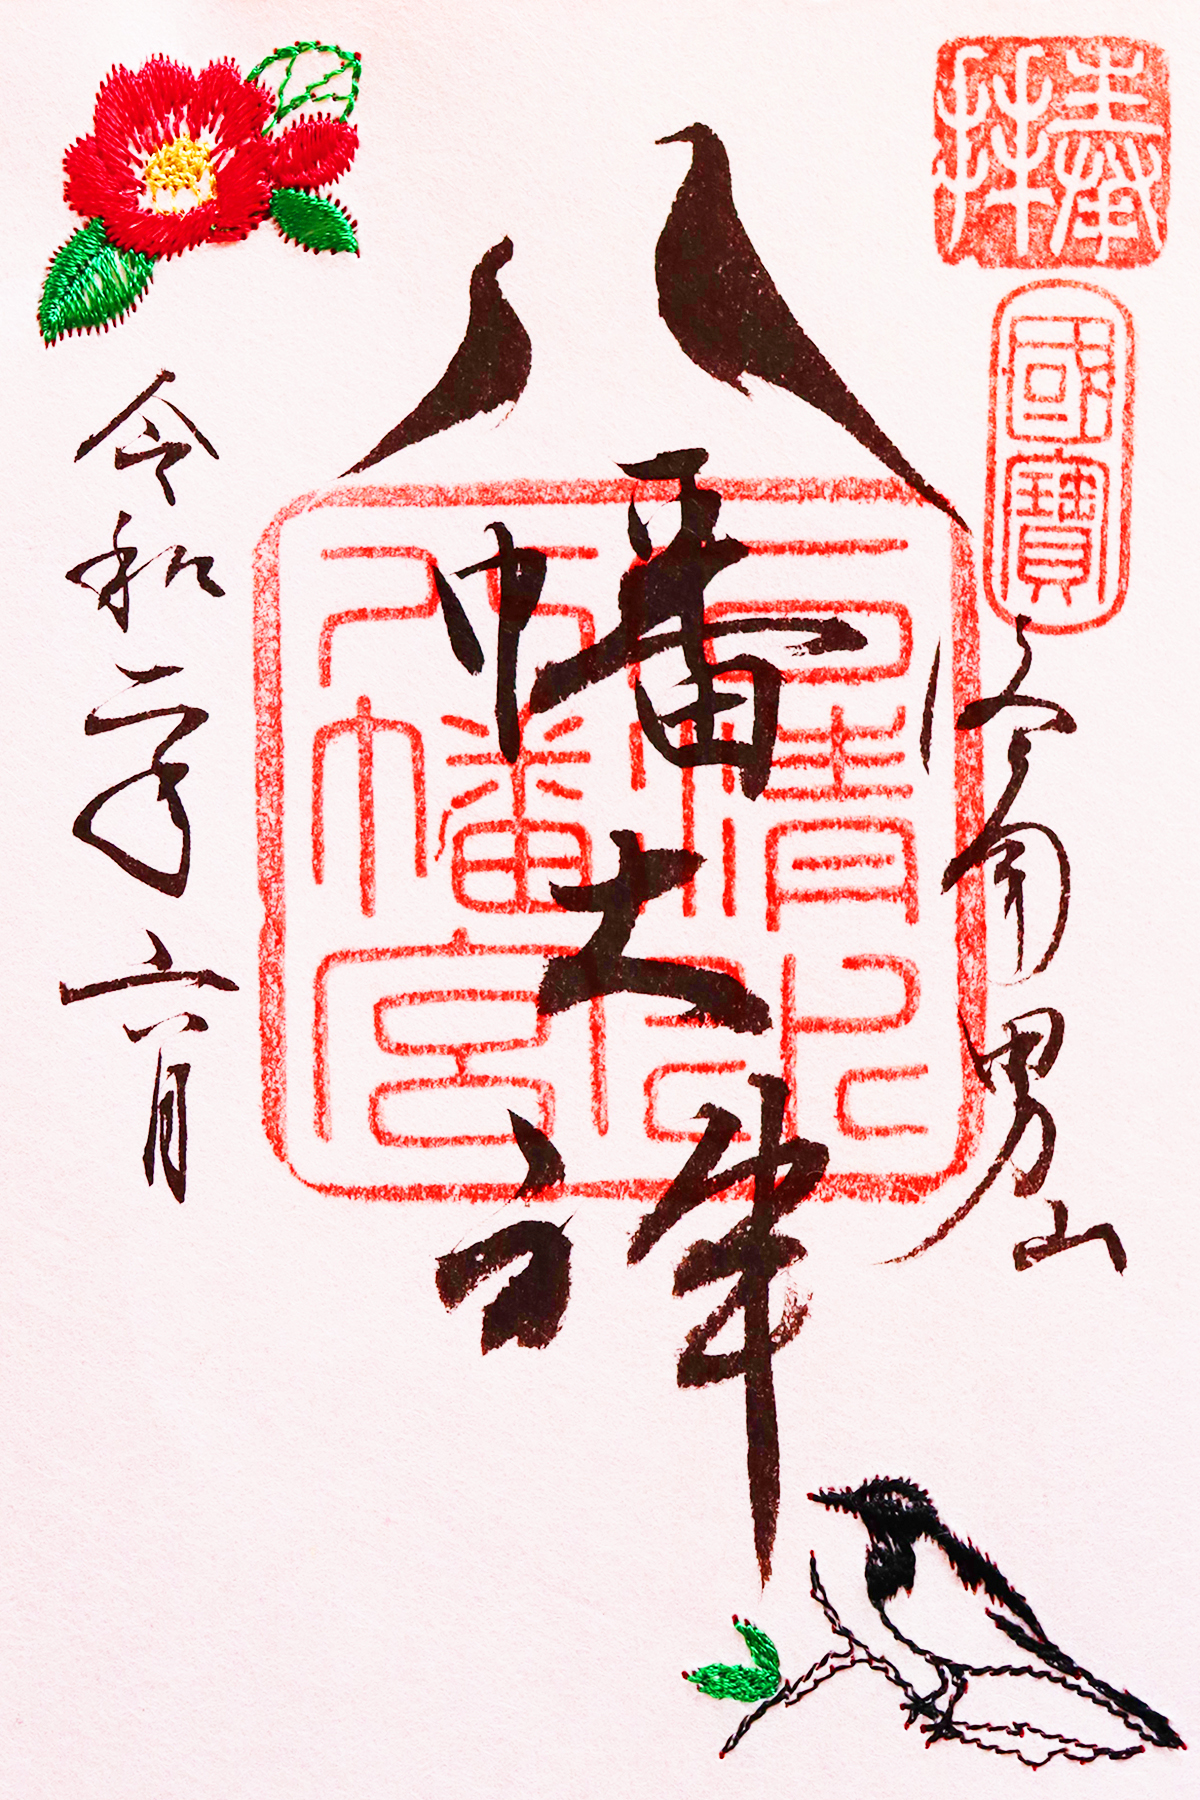 奉拝
國寶
洛南男山
八幡大神
石清水八幡宮
令和二年六月